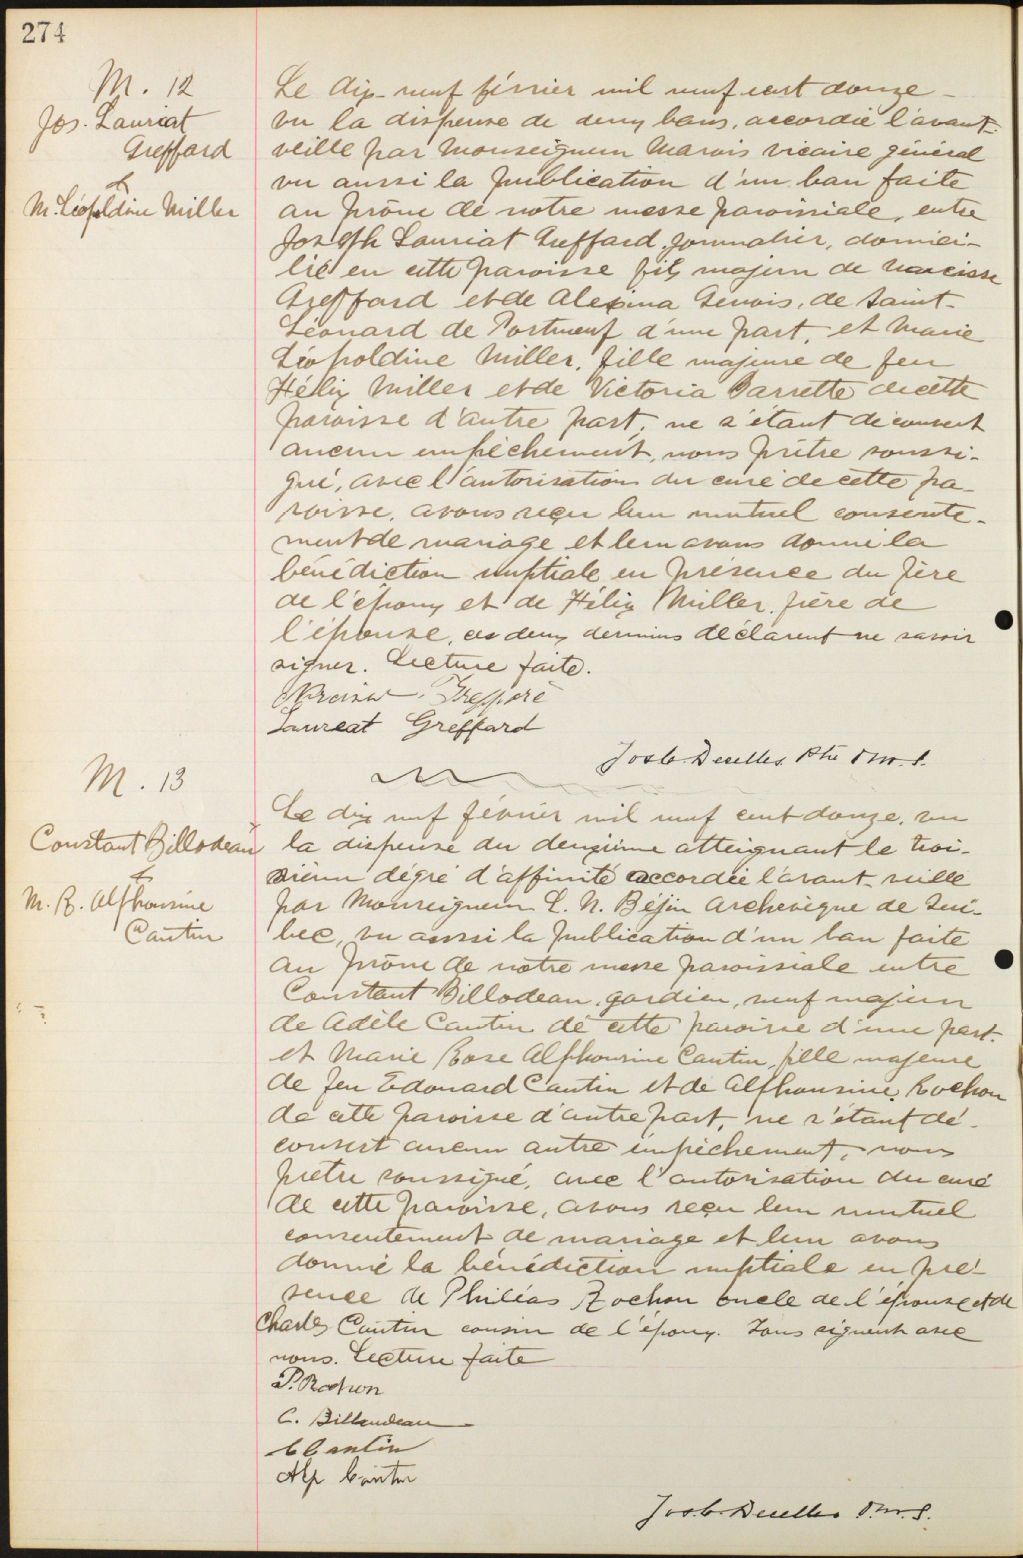 274
M. 12
Jos. Lauriat
Greffard
&
M. Léopoldine Miller
Le dix-neuf février mil neuf cent douze -
vu la dispense de deux bans, accordée l'avant-
veille par Monseigneur Marois vicaire général
vu aussi la publication d'un ban faite
au prône de notre messe paroissiale, entre
Joseph Lauriat Greffard, journalier, domici-
lié en cette paroisse fils majeur de Narcisse
Greffard et de Alexina Genois, de Saint-
Léonard de Portneuf d'une part, et Marie
Léopoldine Miller, fille majeure de feu
Hélix Miller et de Victoria Barrette de cette
paroisse d'autre part, ne s'étant découvert
aucun empêchement, nous prêtre soussi-
gné, avec l'autorisation du curé de cette pa-
roisse, avons reçu leur mutuel consente-
ment de mariage et leur avons donné la
bénédiction nuptiale en présence du père
de l'époux et de Hélix Miller, frère de
l'épouse, ces deux derniers déclarent ne savoir
signer. Lecture faite.
Greffard
Laureat Greffard
Jos C. Decelles Ptre
M. 13
Constant Billodeau
&
M. R. Alphonsine
Cantin
Le dix neuf février mil neuf cent douze, vu
la dispense du deuxième atteignant le troi-
sième dégré d'affinité accordée l'avant-veille
par Monseigneur L. N. Béjin Archevêque de Qué-
bec, vu aussi la publication d'un ban faite
au prône de notre messe paroissiale entre
Constant Billodeau, gardien, veuf majeur
de Adèle Cantin de cette paroisse d'une part-
et Marie Rose Alphonsine Cantin, fille majeure
de feu Edouard Cantin et de Alphonsine Rochon
de cette paroisse d'autre part, ne s'étant dé-
couvert aucun autre empêchement, nous
prêtre soussigné, avec l'autorisation du curé
de cette paroisse, avons reçu leur mutuel
consentement de mariage et leur avons
donné la bénédiction nuptiale en pré-
sence de Philéas Rochon oncle de l'épouse et de
Charles Cantin cousin de l'époux. Tous signent avec
nous. Lecture faite
P. Rochon
C. Billeudeau
C Cantin
Alp Cantin
Jos. C. Decelles